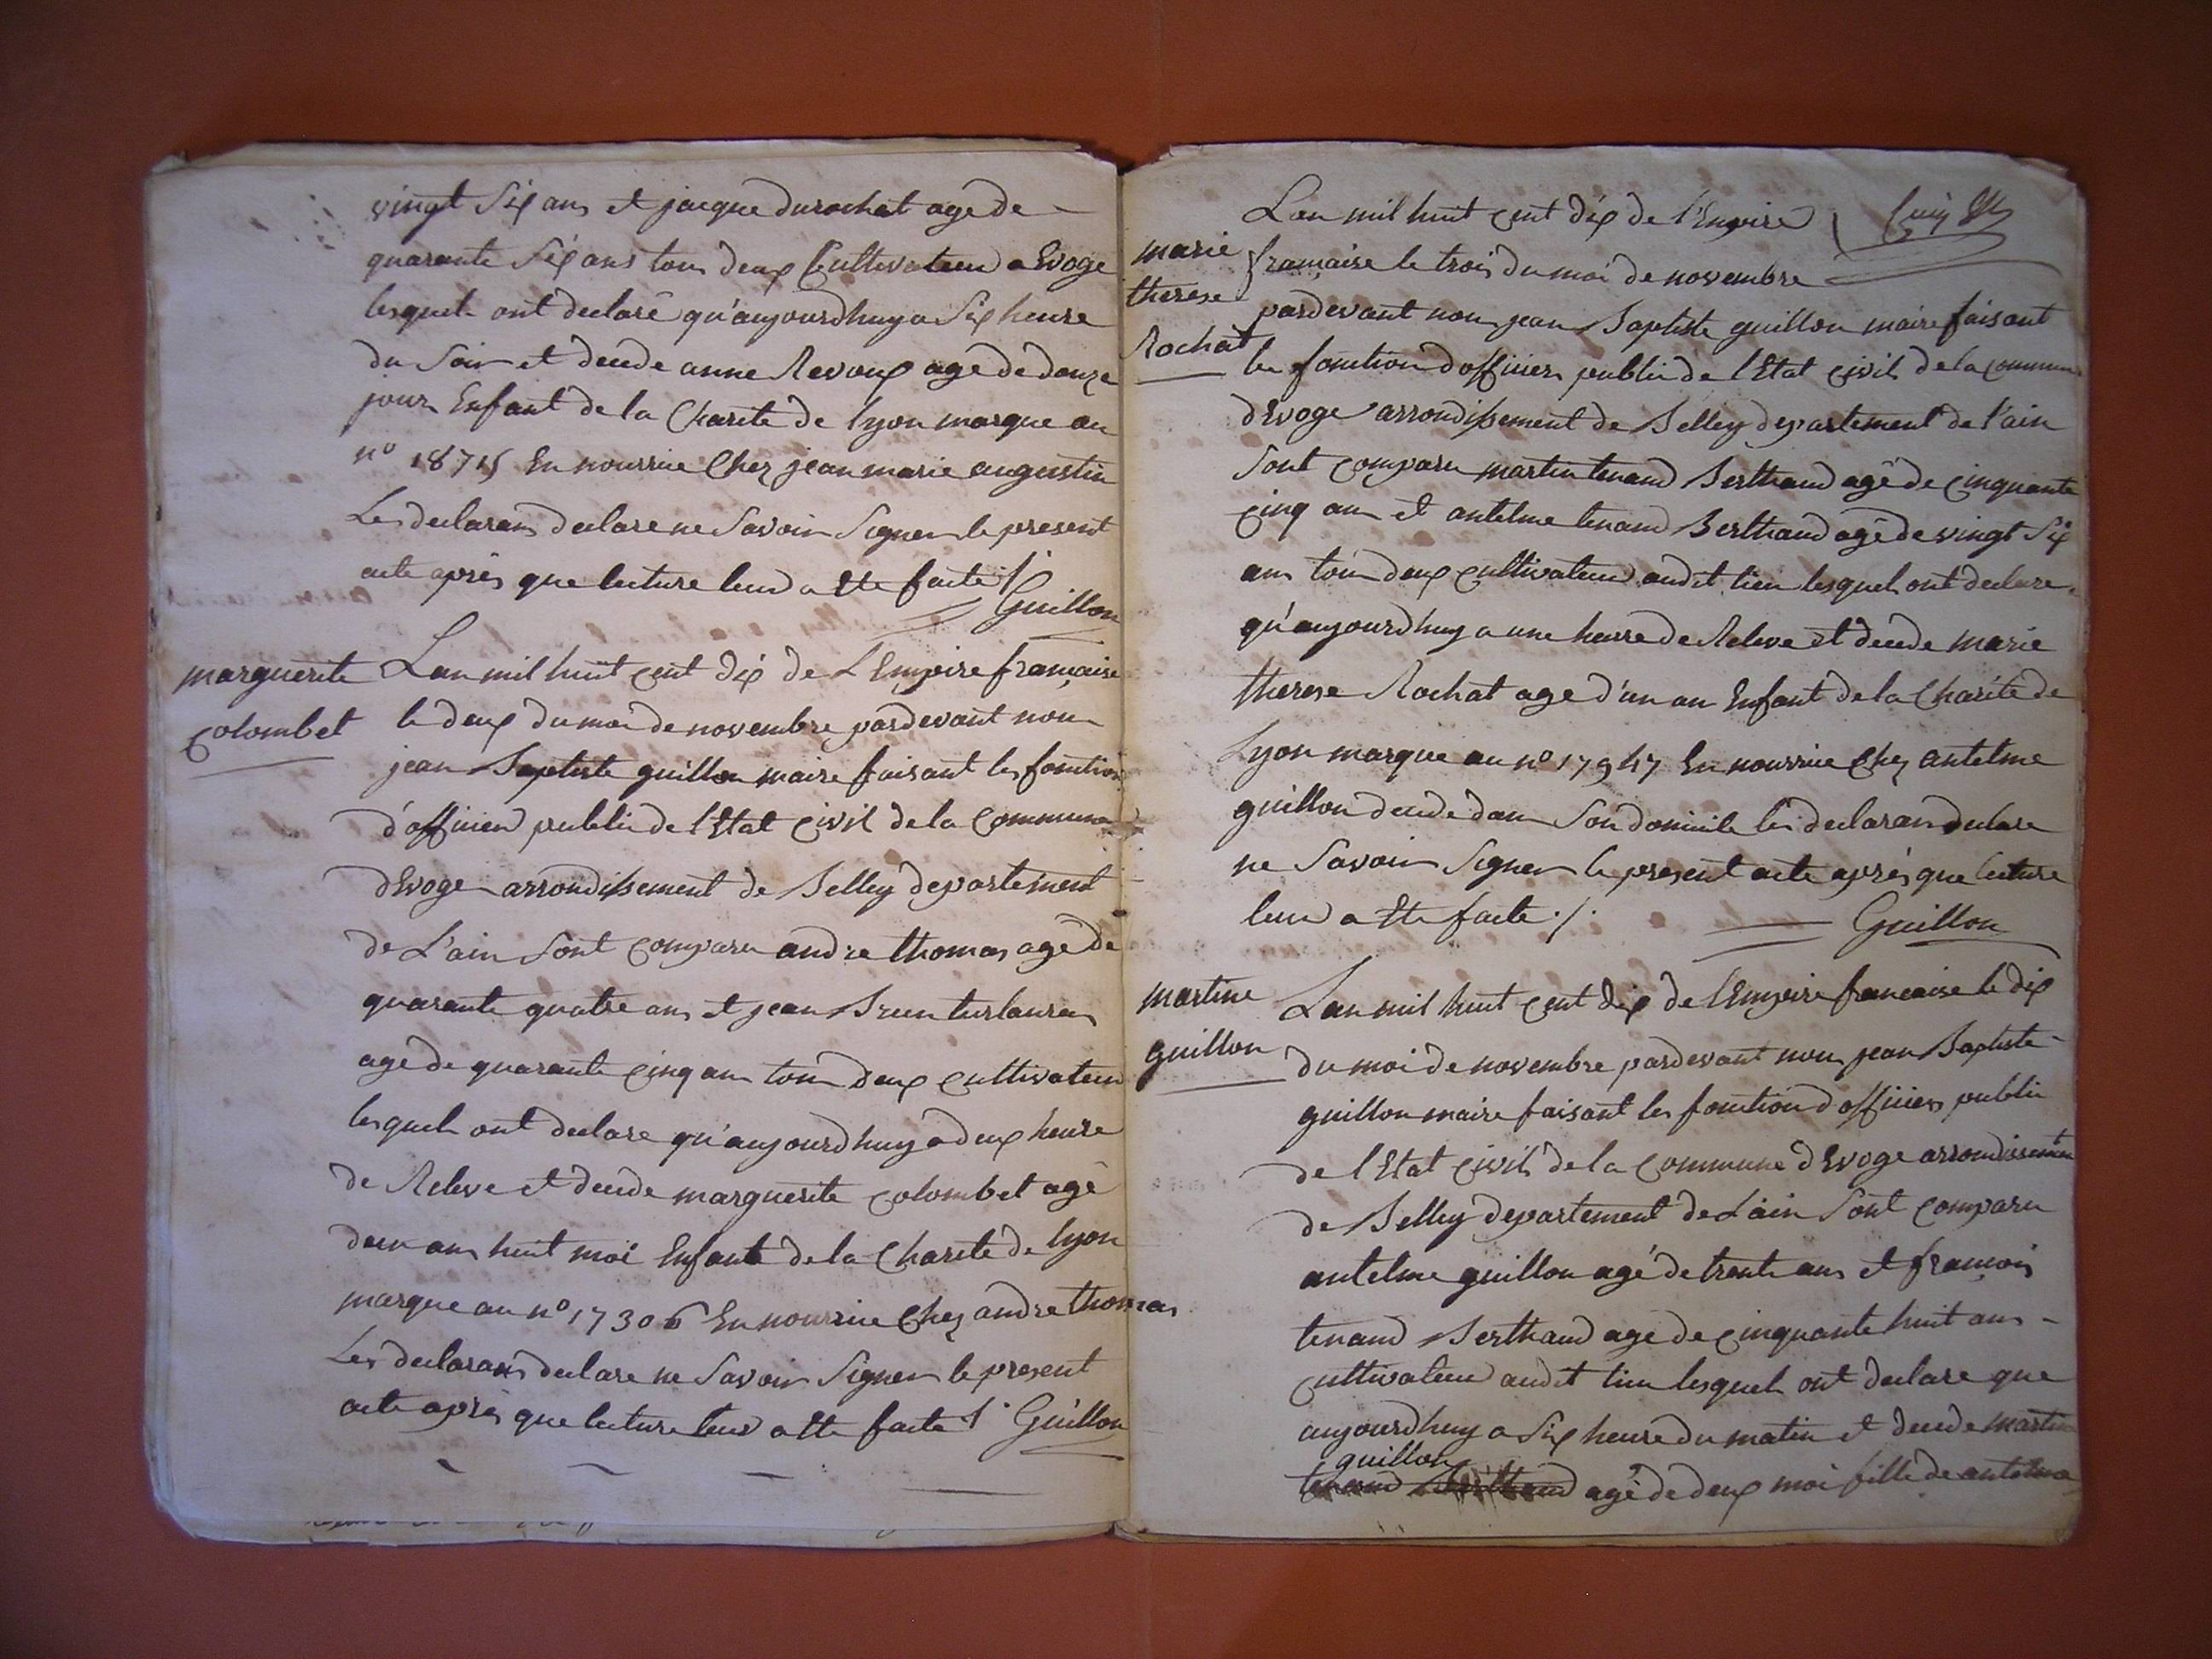 vingt Six ans et jacque durochat age de
quarante Six ans tous deux Cultivateur a Evoge
lesquels ont declaré qu'aujourdhuy a Six heure
du Soir et decede anne Revoux age de douze
jours Enfant de la Charite de lyon marque au
n° 18715 En nourrice Chez jean marie augustin
Les declarans declare ne Savoir Signer le present
acte après que lecture leur a ette faite ./.
Guillon
marguerite
colombet
Lan mil huit cent dix de L'Empire française
le deux du moi de novembre pardevant nous
jean Baptiste guillon maire faisant les fonction
d'officier public de l'Etat civil de la Commune
d'Evoge arrondissement de Belley departement
de L'ain Sont comparu andre thomas age de
quarante quatre ans et jean
age de quarante cinq ans tous deux cultivateur
lesquels ont declare qu'aujourdhuy a deux heure
de Releve et decede marguerite colombet agé
dun ans huit moi Enfant de la Charite de lyon
marque au n° 17306 En nourrice Chez andre thomas
Les declarans declare ne Savoir Signer le present
acte après que lecture leur a ette faite ./. Guillon
marie
therese
Rochat
Lan mil huit cent dix de l'Empire
française le trois du moi de novembre
pardevant nous jean Baptiste guillon maire faisant
les fonction d'officier public de l'Etat civil de la commune
d'Evoge arrondissement de Belley departement de l'ain
Sont comparu martin tenand Berthaud agé de cinquante
cinq ans et antelme tenand Berthaud agé de vingt Six
ans tous deux cultivateur audit lieu lesquels ont declare
qu'aujourdhuy a une heure de Releve et decede marie
therese Rochat age d'un an Enfant de la Charité de
Lyon marque au n° 17947 En nourrice Chez antelme
guillon decede dans Son domicile les declarans declare
ne Savoir Signer le present acte après que lecture
leur a ette faite ./. Guillon
martine
guillon
Lan mil huit cent dix de l'Empire francaise le dix
du moi de novembre pardevant nous jean Baptiste
guillon maire faisant les fonction d'officier public
de l'Etat civil de la commune d'Evoge arrondissement
de Belley departement de L'ain Sont comparu
antelme guillon agé de trente ans et françois
tenand Berthaud age de cinquante huit ans
cultivateur audit lieu lesquels ont declare que
aujourdhuy a Six heure du matin et decede martine
guillon
tenand Berthaud agé de deux moi fille de antelme